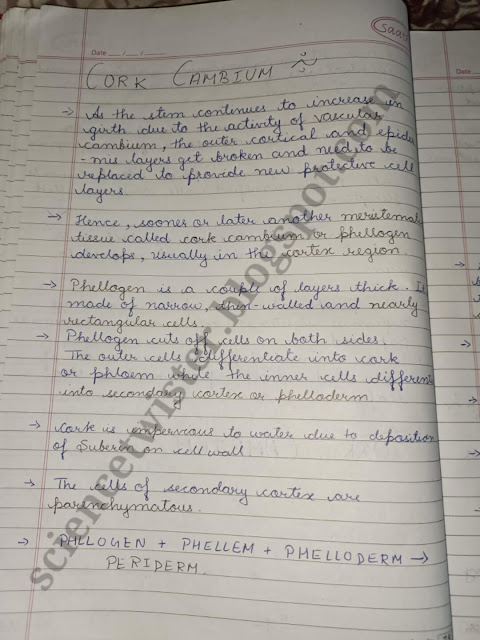 Saa
Date __/__/__
CORK CAMBIUM
→ As the stem continues to increase in
girth due to the activity of vascular
cambium, the outer cortical and epider
-mis layers get broken and need to be
replaced to provide new protective cell
layers.
→ Hence, sooner or later another meristematic
tissue called cork cambium or phellogen
develops, usually in the cortex region.
→ Phellogen is a couple of layers thick. It
made of narrow, thin-walled and nearly
rectangular cells.
→ Phellogen cuts off cells on both sides.
The outer cells differentiate into cork
or phloem while the inner cells different
into secondary cortex or phelloderm
→ Cork is impervious to water due to deposition
of Suberin on cell wall.
→ The cells of secondary cortex are
parenchymatous.
→ PHLLOGEN + PHELLEM + PHELLODERM →
PERIDERM.
sciencetwister.blogspot.com
Date